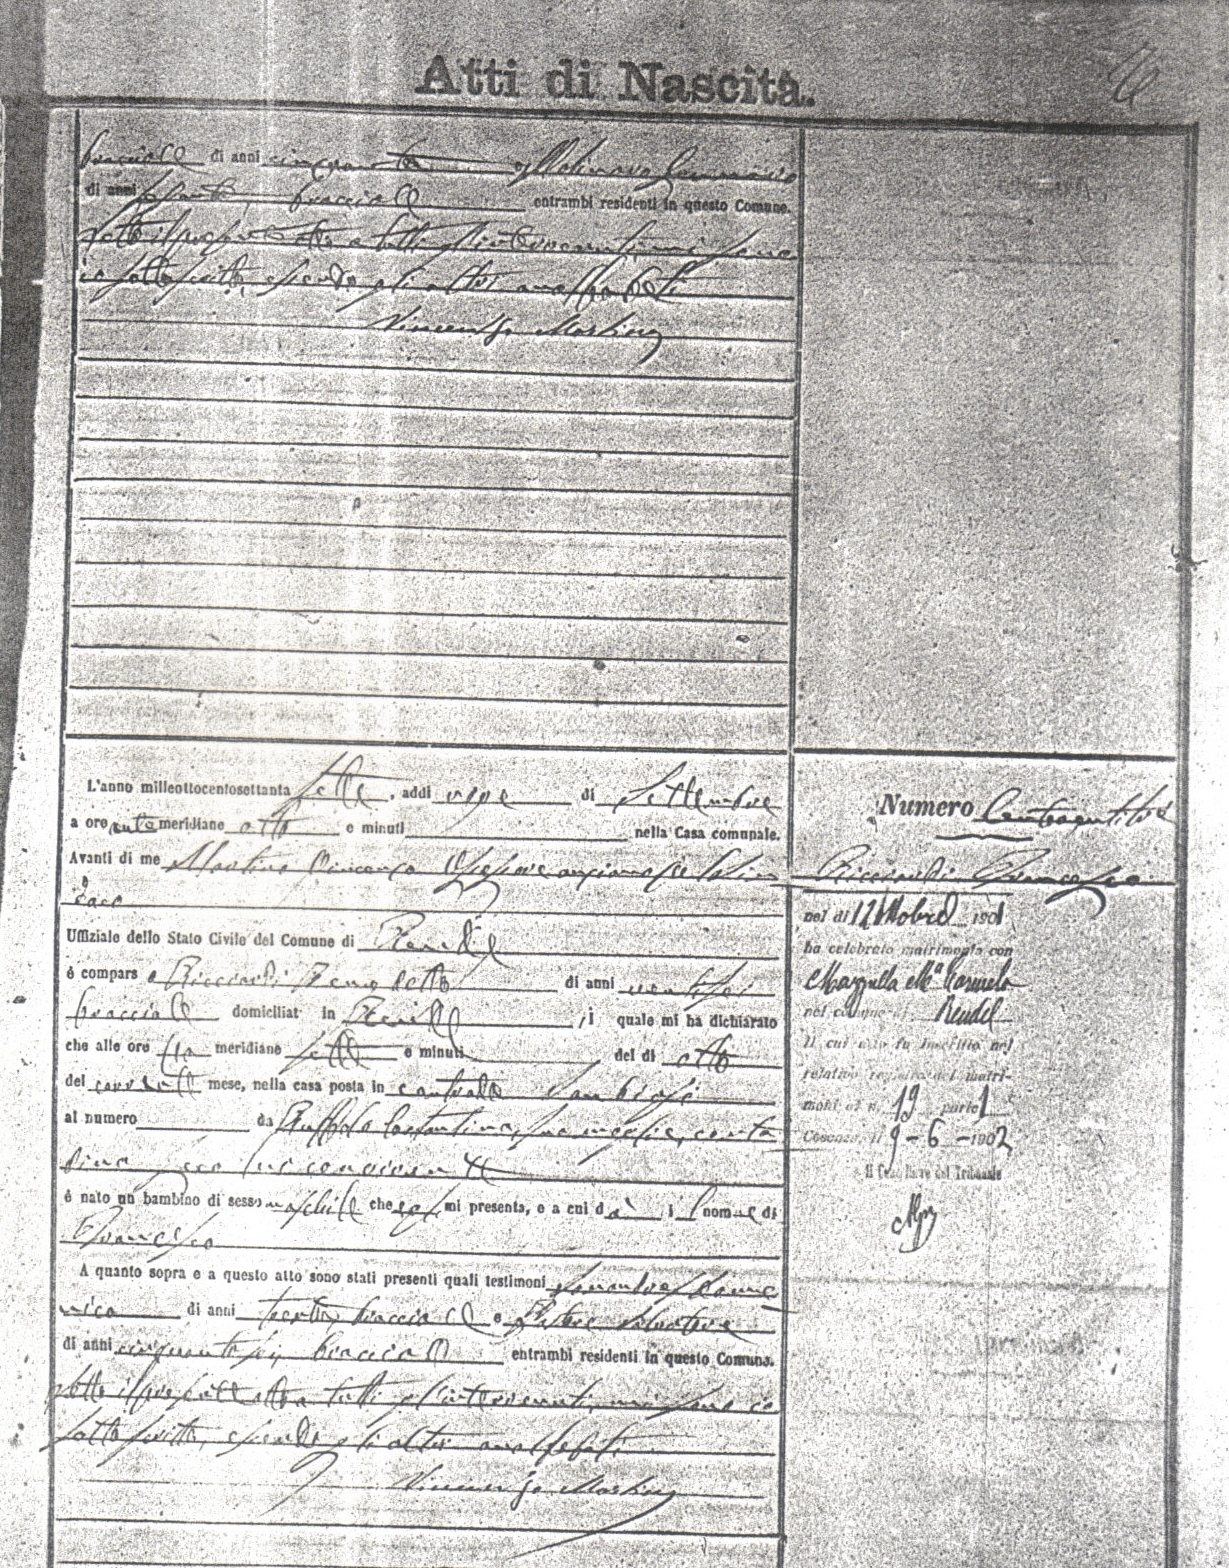 Atti di Nascita.
di anni cinquanta Molinaro Gennaro
di anni bracciale entrambi residenti in questo Comune.
letto il presente atto a tutti gl'intervenuti, mi sono
io sottoscritto, essendo gli altri analfabeti
Vincenzo Martino
L'anno milleottocentosettanta sette, addi nove di Settembre
a ore ante meridiane otto e minuti nella Casa comunale.
Avanti di me Martino Vincenzo Assessore anziano pel Sin
daco
Uffiziale dello Stato Civile del Comune di Rende
è comparso Ricciardi Benedetto di anni ventisei
bracciale domiciliato in Rende, il quale mi ha dichiarato
che alle ore meridiane sette e minuti del dì otto
del corrente mese, nella casa posta in contrada San Biagio
al numero da Ruffolo Costantina, sua moglie, conta
dina, seco lui convivente
è nato un bambino di sesso maschile che egli mi presenta, e a cui dà il nome di
Francesco
A quanto sopra e a questo atto sono stati presenti quali testimoni Dome
nico di anni trenta, bracciale e Salvatore
di anni cinquantasei, bracciale entrambi residenti in questo Comune.
Letto il presente atto a tutti gl'intervenuti, mi sono io
sottoscritto, essendo gli altri analfabeti
Vincenzo Martino
Numero Centoventitre
Ricciardi Francesco
nel dì 12 1901
ha celebrato matrimonio con
Mazzulla Ma Carmela
nel comune di Rende
il cui atto fu inscritto nel
relativo registro dei matri-
moni al n. 19 parte 1
Cosenza, lì 9-6-1902
Il Cancelliere del Tribunale